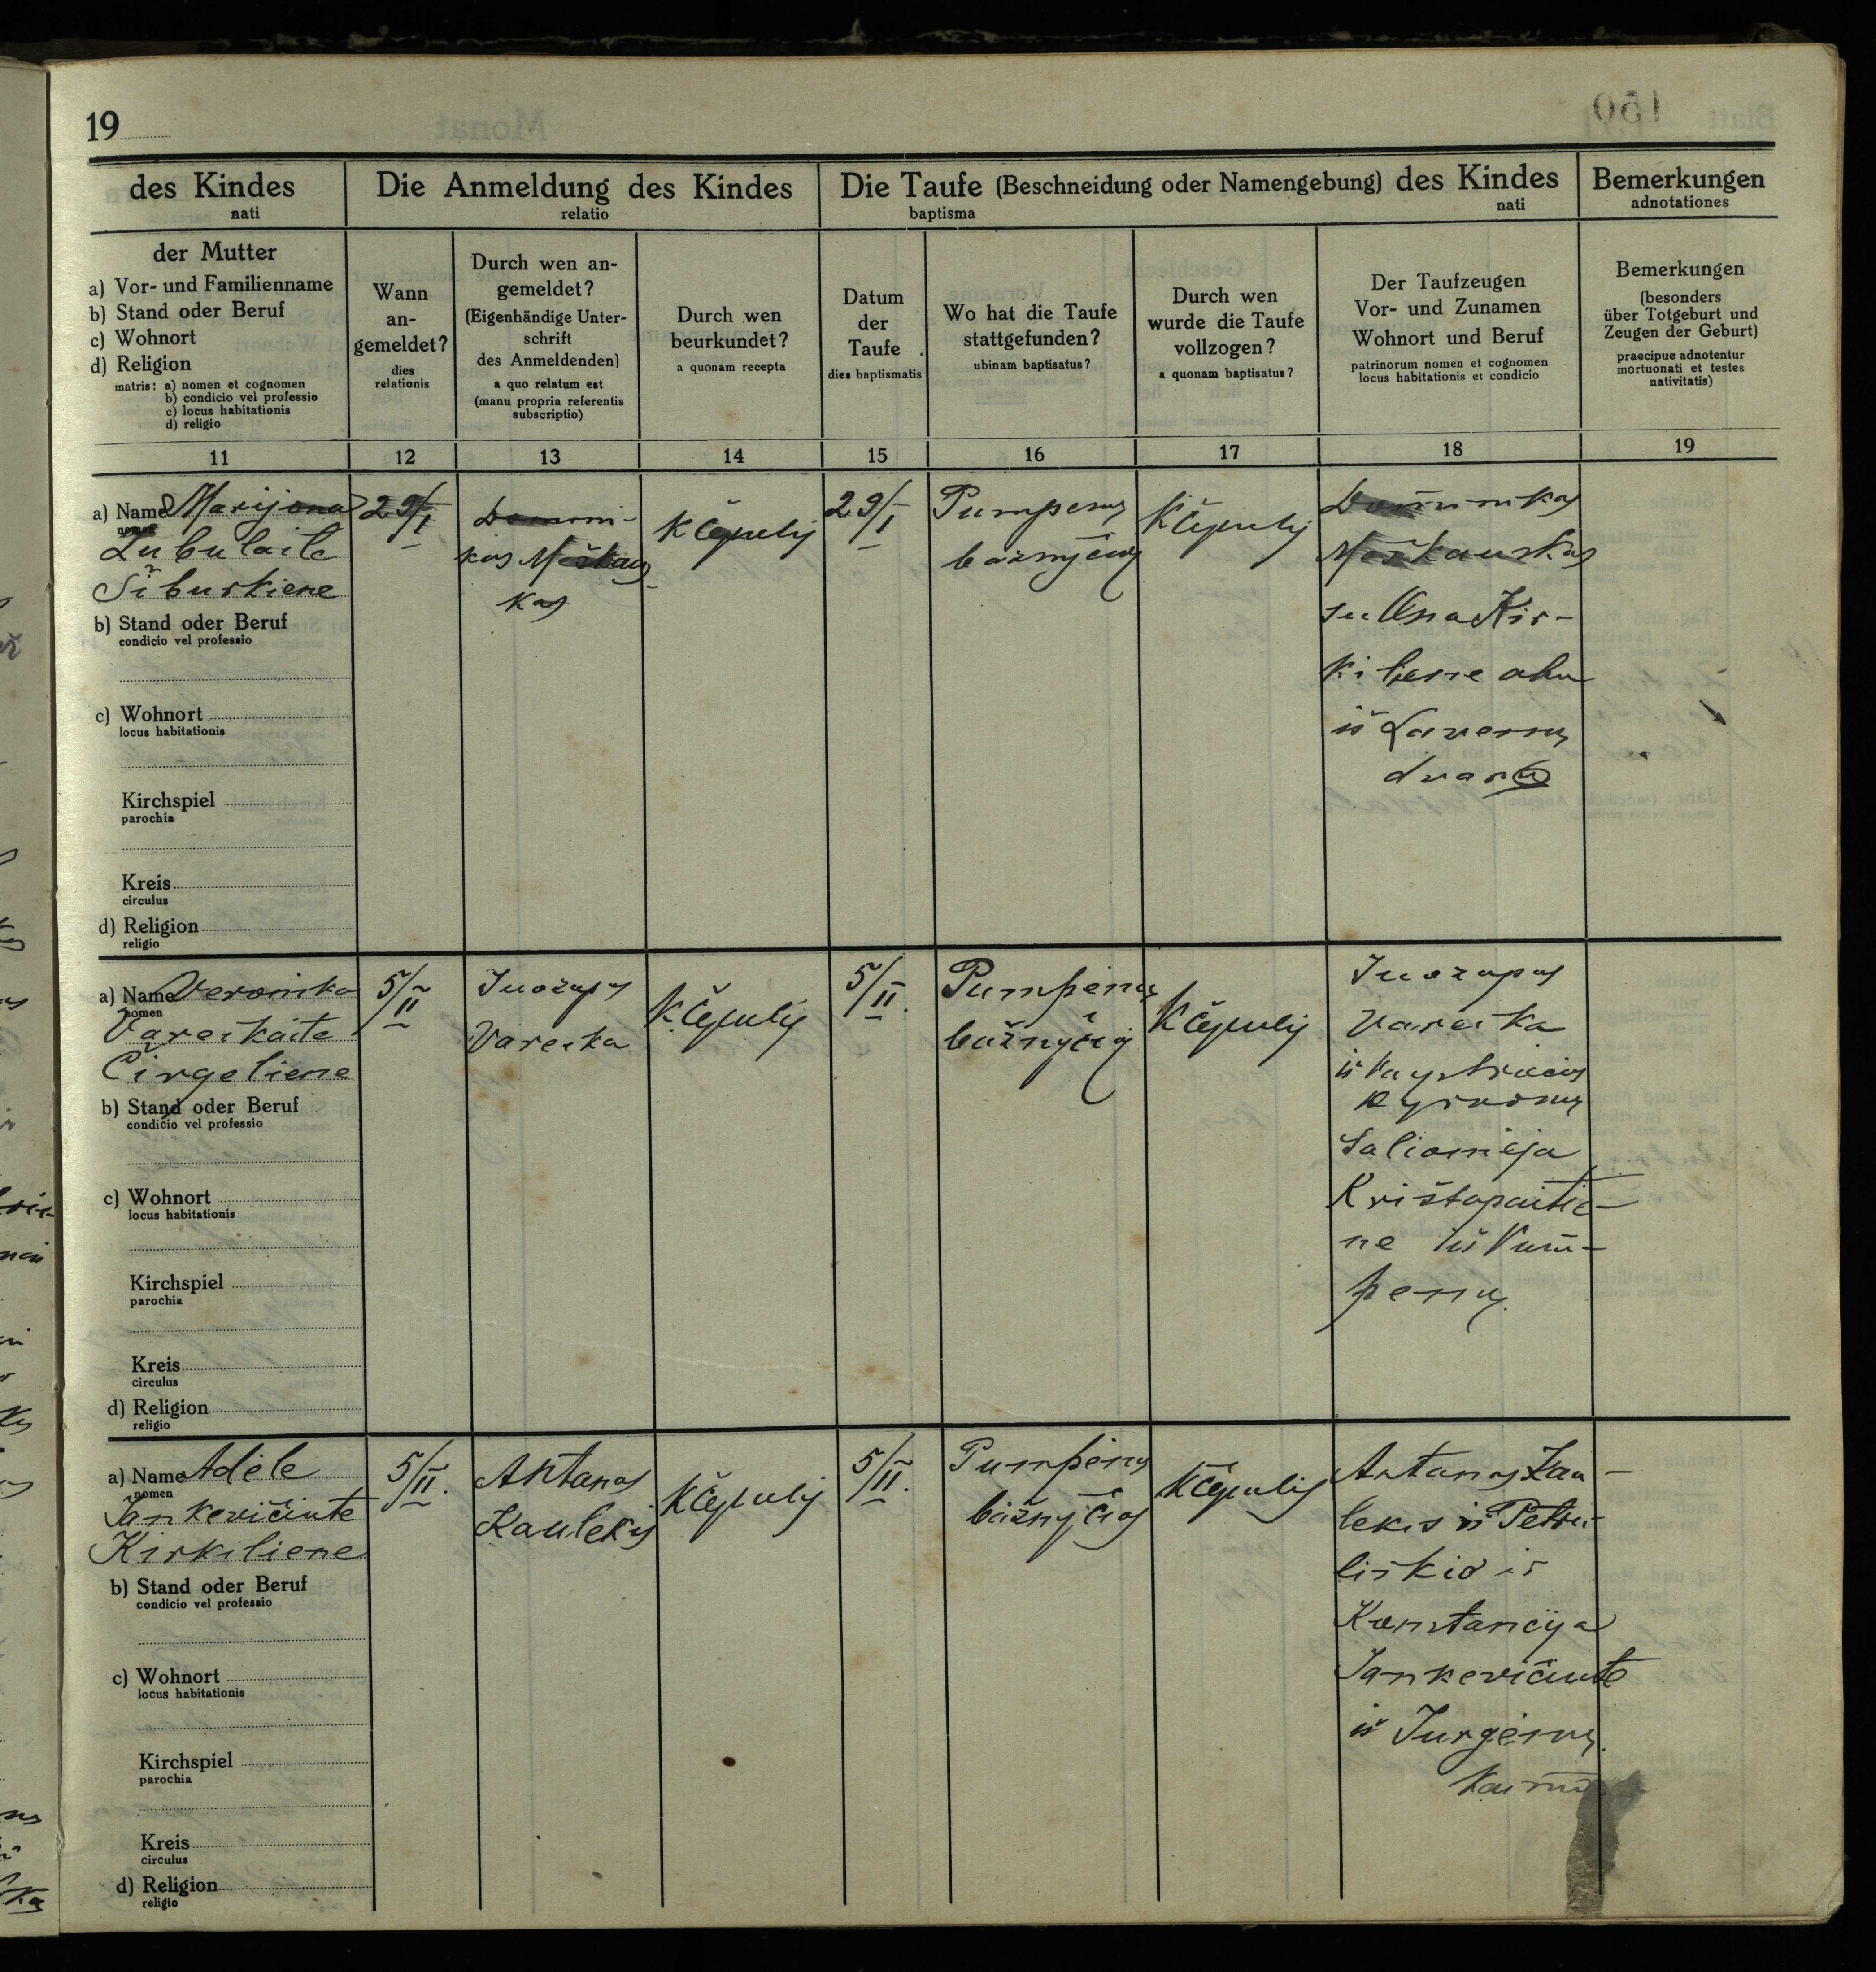 19
des Kindes
nati
Die Anmeldung des Kindes
relatio
Die Taufe (Beschneidung oder Namengebung) des Kindes
baptisma nati
Bemerkungen
adnotationes
der Mutter
a) Vor- und Familienname
b) Stand oder Beruf
c) Wohnort
d) Religion
matris: a) nomen et cognomen
b) condicio vel professio
c) locus habitationis
d) religio
Wann
an-
gemeldet?
dies
relationis
Durch wen an-
gemeldet?
(Eigenhändige Unter-
schrift
des Anmeldenden)
a quo relatum est
(manu propria referentis
subscriptio)
Durch wen
beurkundet?
a quonam recepta
Datum
der
Taufe
dies baptismatis
Wo hat die Taufe
stattgefunden?
ubinam baptisatus?
Durch wen
wurde die Taufe
vollzogen?
a quonam baptisatus?
Der Taufzeugen
Vor- und Zunamen
Wohnort und Beruf
patrinorum nomen et cognomen
locus habitationis et condicio
Bemerkungen
(besonders
über Totgeburt und
Zeugen der Geburt)
praecipue adnotentur
mortuonati et testes
nativitatis)
11 12 13 14 15 16 17 18 19
a) Name Marijona
nomen
Zubulaite
Siburkiene
b) Stand oder Beruf
condicio vel professio
c) Wohnort
locus habitationis
Kirchspiel
parochia
Kreis
circulus
d) Religion
religio
29/I
Domini-
kas
kas
K Čepulis
29/I
Pumpenų
bažnyčioj
K Čepulis
Dominikas
su Ona Kir-
kiliene abu
iš Lavenų
dvaro
a) Name Veronika
nomen
Vareikaite
Čirgeliene
b) Stand oder Beruf
condicio vel professio
c) Wohnort
locus habitationis
Kirchspiel
parochia
Kreis
circulus
d) Religion
religio
5/II
Juozapas
Vareika
K. Čepulis
5/II.
Pumpenų
bažnyčioj
K Čepulis
Juozapas
Vareika
iš
Saliomėja
Krištapaitie-
ne iš Pum-
penų.
a) Name Adėlė
nomen
Jankevičiute
Kirkiliene
b) Stand oder Beruf
condicio vel professio
c) Wohnort
locus habitationis
Kirchspiel
parochia
Kreis
circulus
d) Religion
religio
5/II.
Antanas
Kaulekis
K Čepulis
5/II.
Pumpėnų
bažnyčioj
K Čepulis
Antanas Kau-
lekis iš Petru-
liškio ir
Konstancija
Jankevičiute
iš Jurgėnų
kaimo